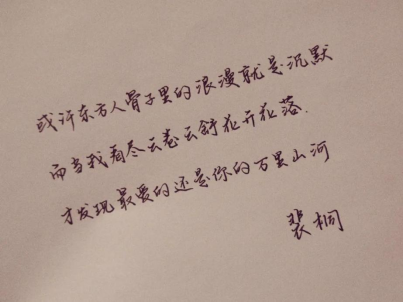 或许东方人骨子里的浪漫就是沉默
而当我看尽云卷云舒花开花落.
才发现最爱的还是你的万里山河
裴桐